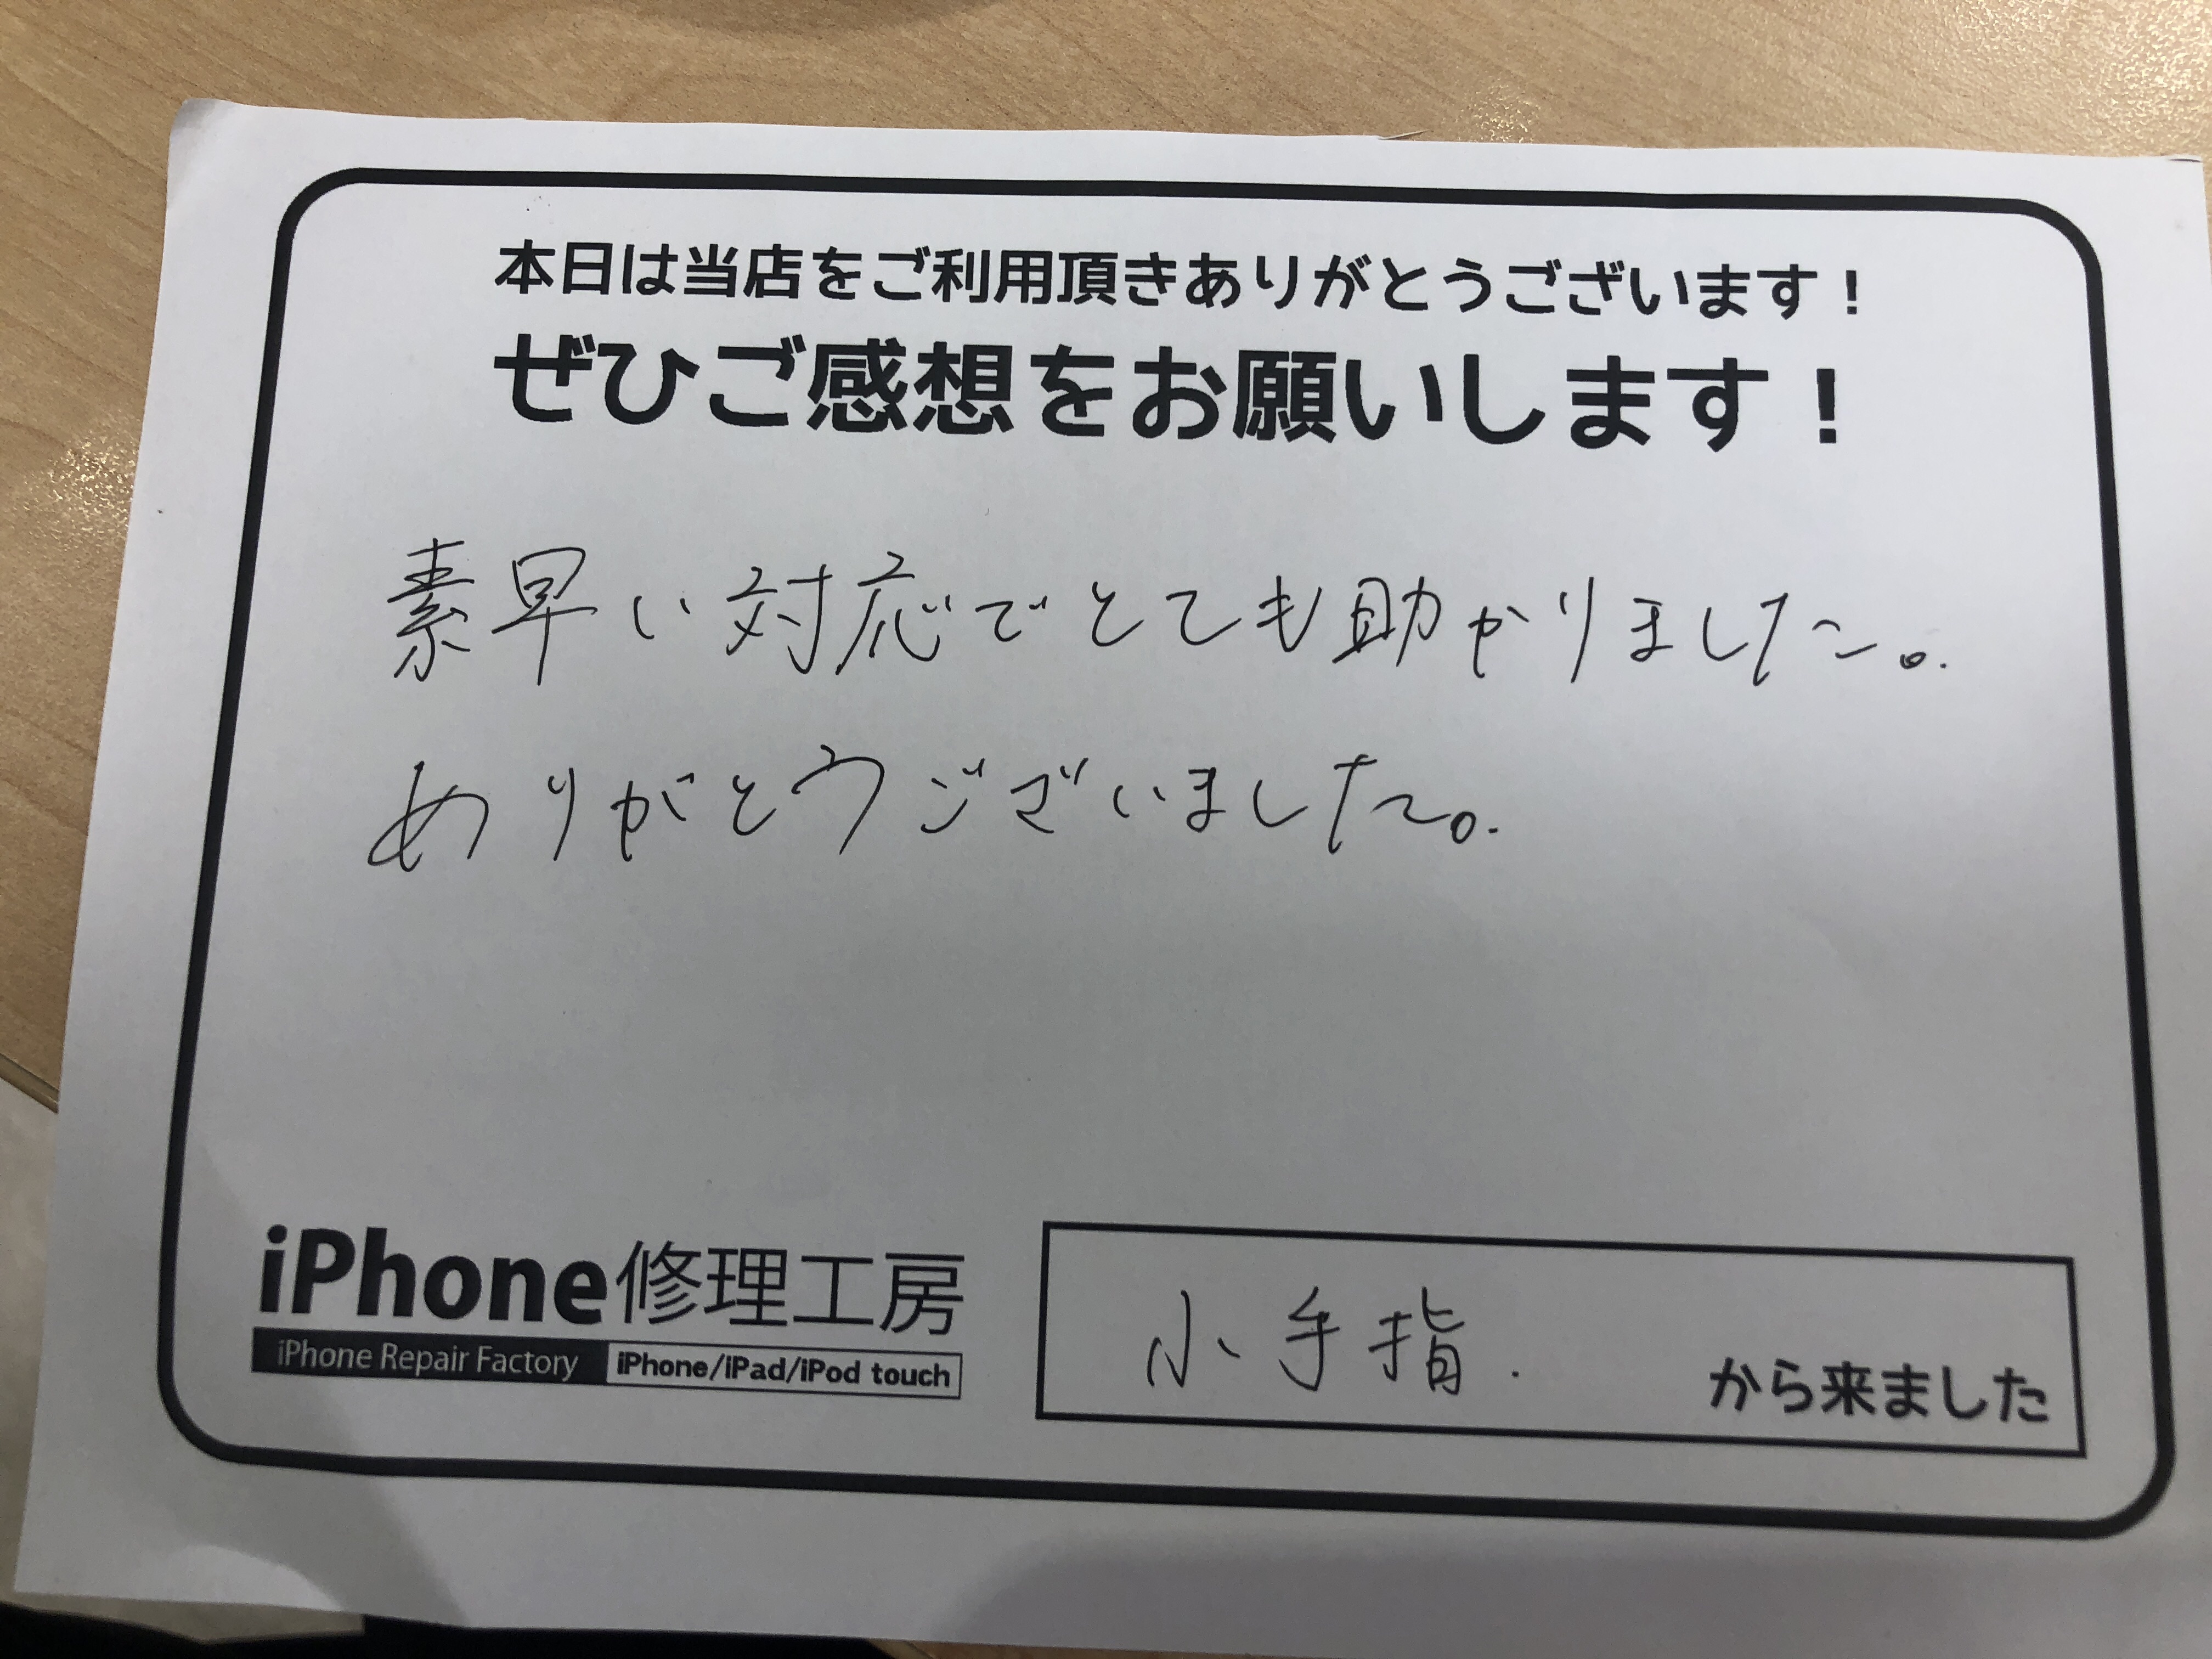 本日は当店をご利用頂きありがとうございます！
ぜひご感想をお願いします！
素早い対応でとても助かりました。
ありがとうございました。
iPhone修理工房
iPhone Repair Factory iPhone/iPad/iPod touch
小手指. から来ました